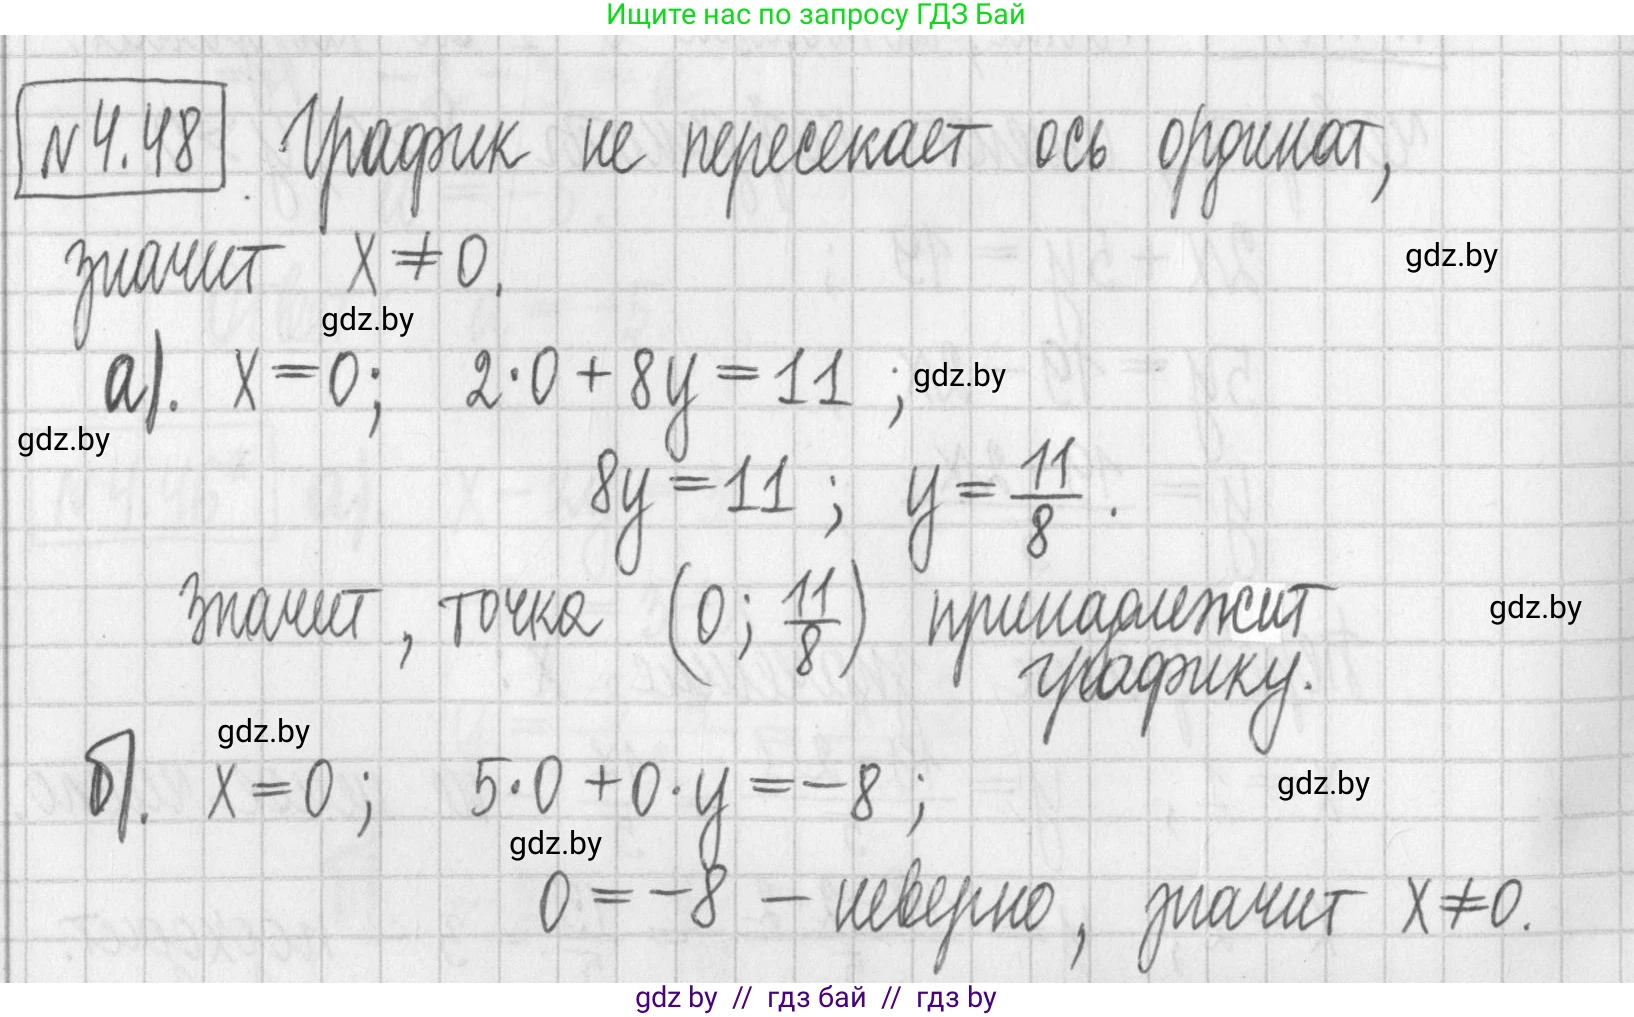 Ищите нас по запросу ГДЗ Бай
№4.48. График не пересекает ось ординат,
gdz.by
значит x ≠ 0.
gdz.by
а). x = 0; 2·0 + 8y = 11 ;
gdz.by
gdz.by
8y = 11 ; y = 11/8 .
Значит, точка (0; 11/8) принадлежит
gdz.by
графику.
gdz.by
б). x = 0; 5·0 + 0·y = -8 ;
gdz.by
gdz.by
0 = -8 – неверно, значит x ≠ 0.
gdz by // гдз бай // гдз by